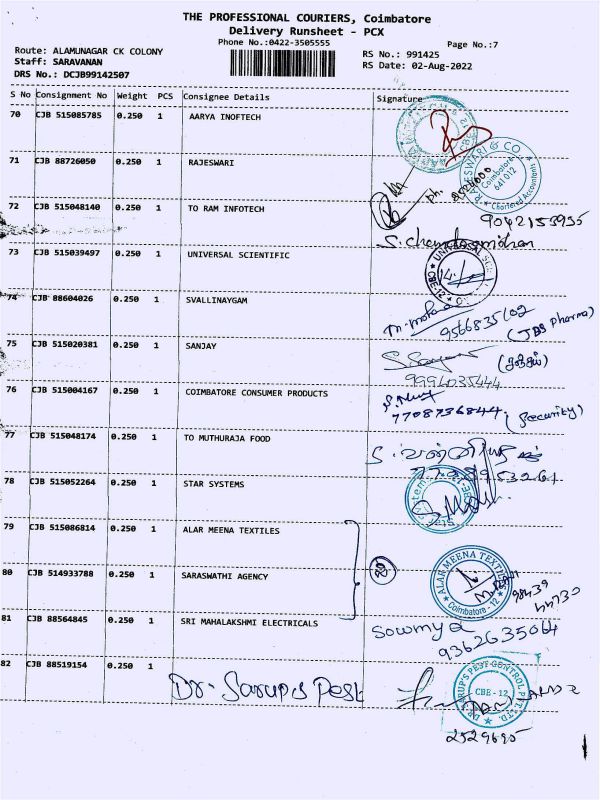 THE PROFESSIONAL COURIERS, Coimbatore
Delivery Runsheet - PCX
Phone No.:0422-3505555
Page No.:7
Route: ALAMUNAGAR CK COLONY
RS No.: 991425
Staff: SARAVANAN
RS Date: 02-Aug-2022
DRS No.: DCJB99142507
S No Consignment No Weight PCS Consignee Details Signature
70 CJB 515085785 0.250 1 AARYA INOFTECH
71 CJB 88726050 0.250 1 RAJESWARI
RAJESWARI & CO.
Coimbatore
641 012
Chartered Accountants
ph.
72 CJB 515048140 0.250 1 TO RAM INFOTECH
9042153935
S. chandramohan
73 CJB 515039497 0.250 1 UNIVERSAL SCIENTIFIC
CBE-12
74 CJB 88604026 0.250 1 SVALLINAYGAM
9566835102 (JBS Pharma)
75 CJB 515020381 0.250 1 SANJAY
(சஞ்சய்)
9994035444
76 CJB 515004167 0.250 1 COIMBATORE CONSUMER PRODUCTS
7708736844 (Security)
77 CJB 515048174 0.250 1 TO MUTHURAJA FOOD
78 CJB 515052264 0.250 1 STAR SYSTEMS
79 CJB 515086814 0.250 1 ALAR MEENA TEXTILES
ALAR MEENA TEXTILES
Coimbatore - 12
80 CJB 514933788 0.250 1 SARASWATHI AGENCY
98439
44730
81 CJB 88564845 0.250 1 SRI MAHALAKSHMI ELECTRICALS
Sowmya
9362635064
82 CJB 88519154 0.250 1
Dr. Sarup's Pest
DR. SARUP'S PEST CONTROL PVT. LTD.
CBE - 12
2529695